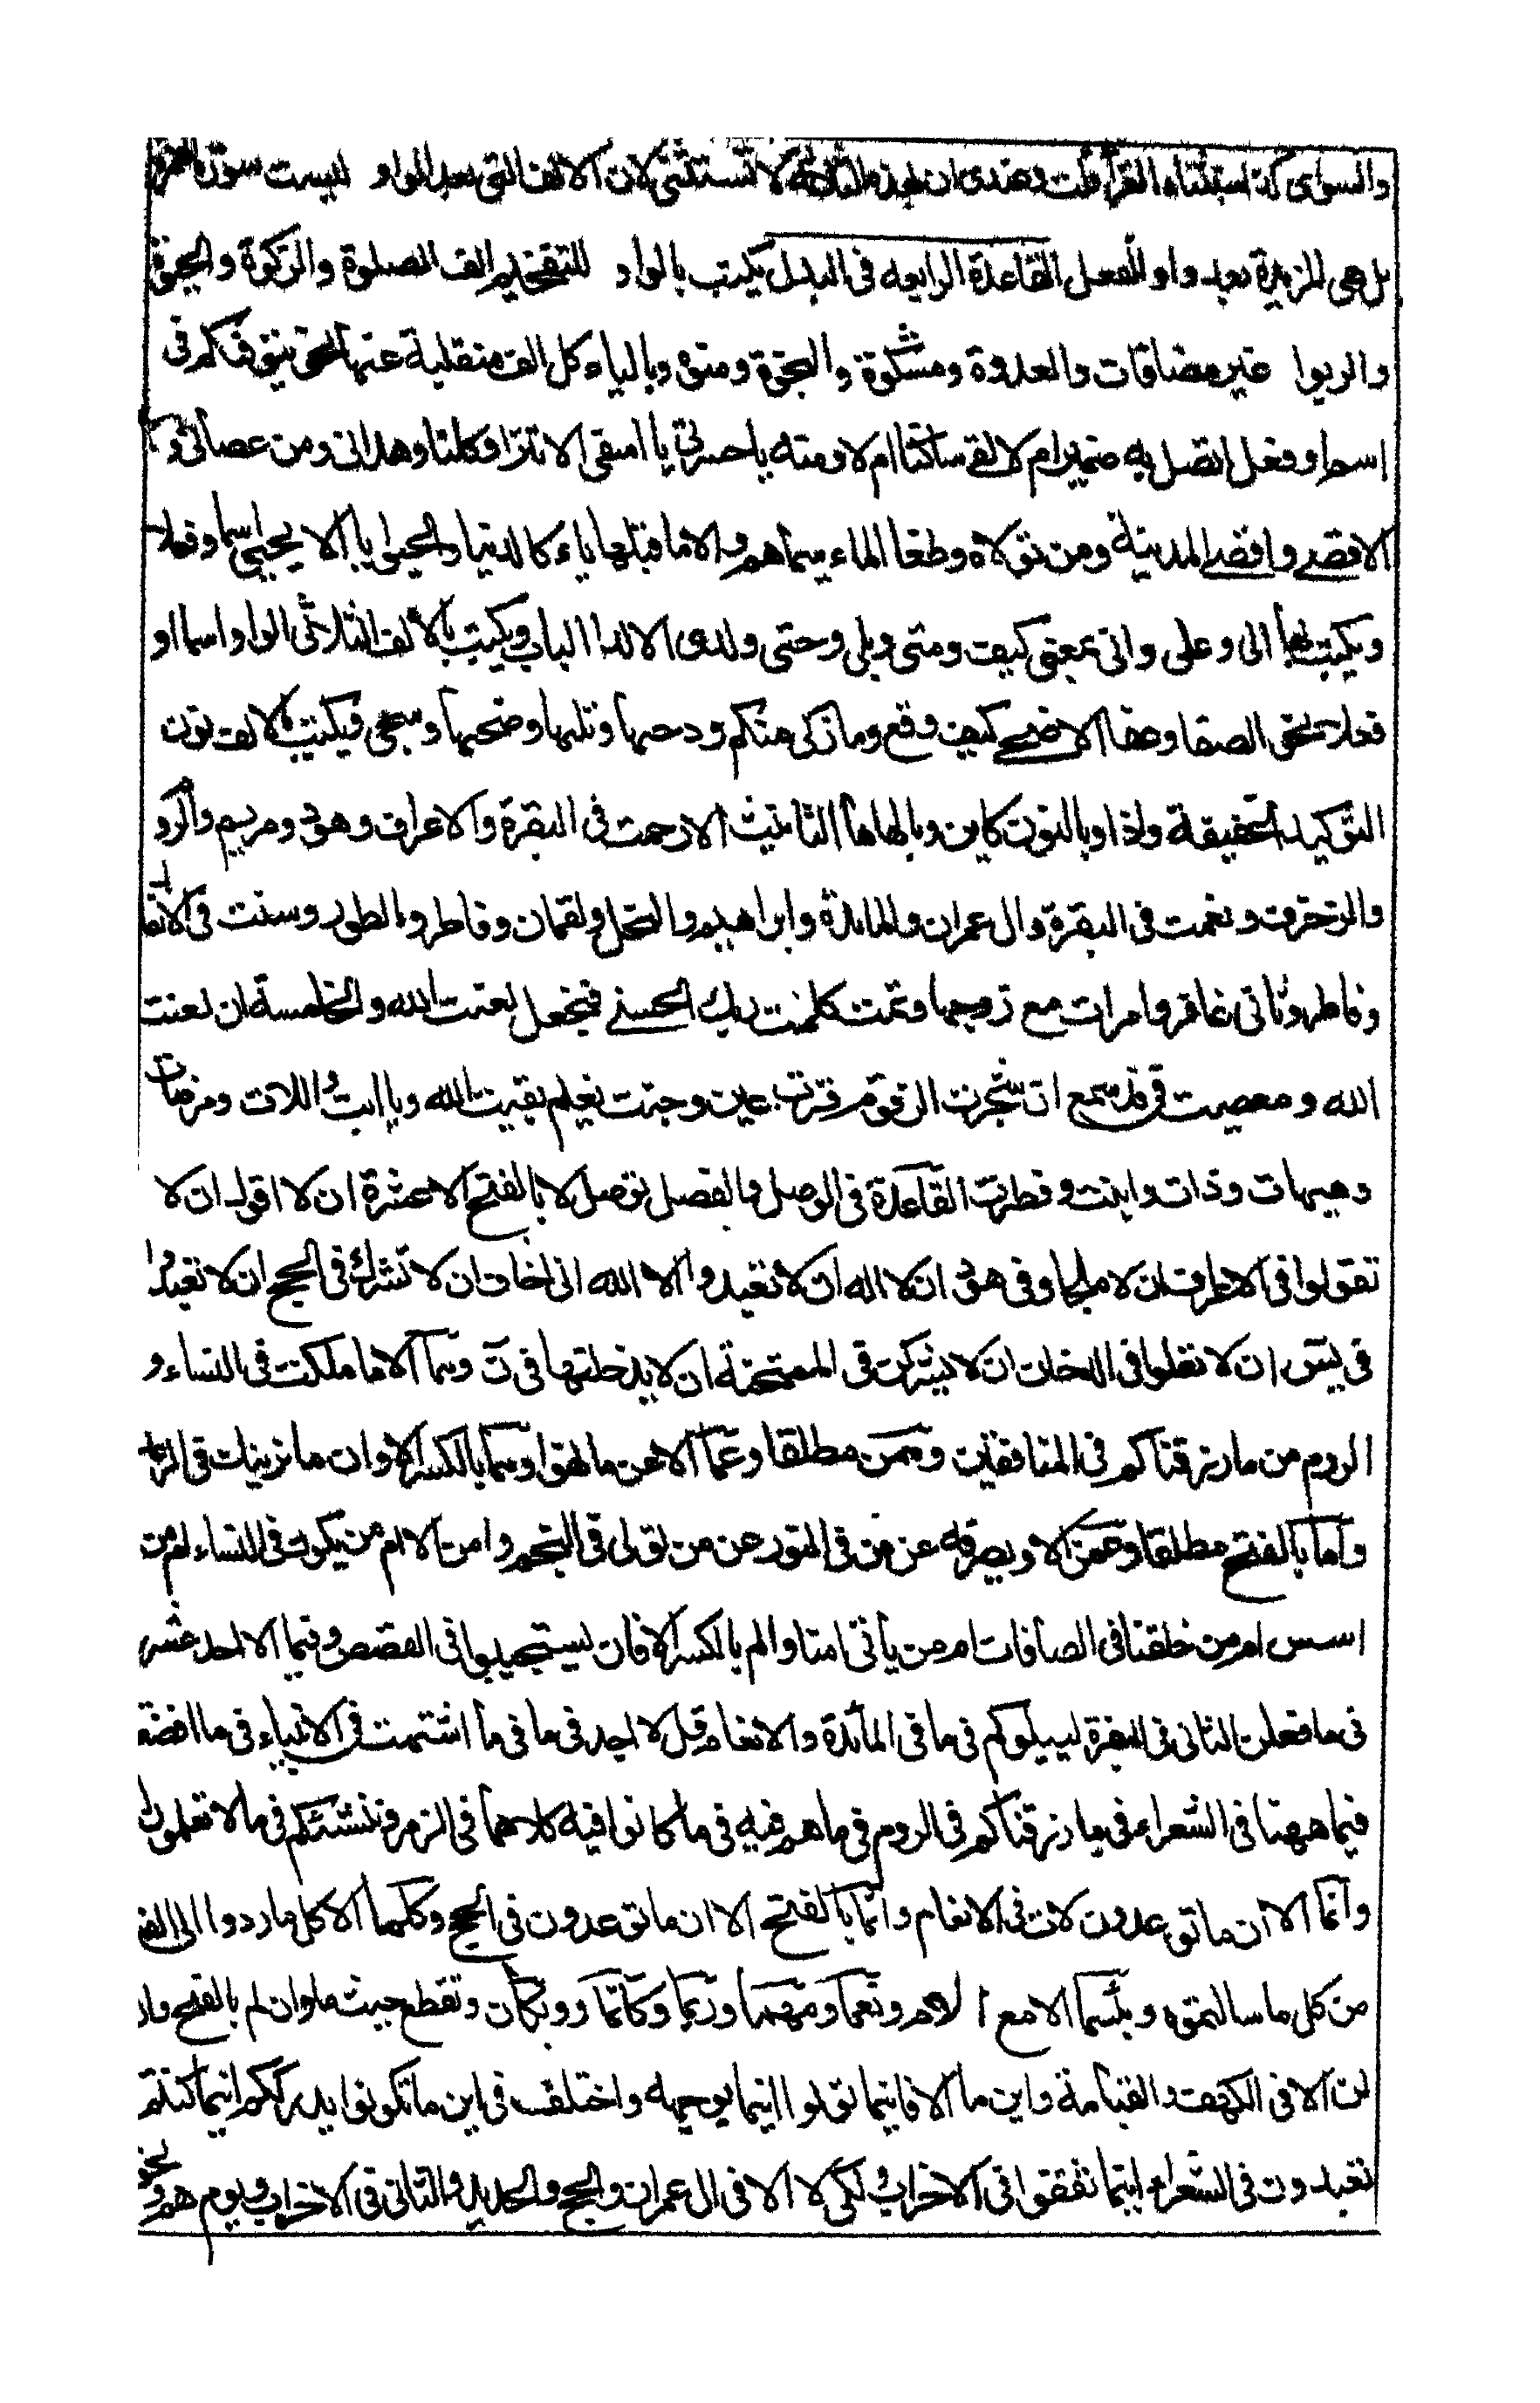 والسواى كذا استثناه القرأ قلت وعندى ان هذه الثلاثة لا تستثنى لان الالف التى بعد الواو ليست صورة الهمزة
بل هى المزيدة بعد واو الفعل القاعدة الرابعه فى البدل يكتب بالواو للتفخيم الف الصلوة والزكوة والحيوة
والربوا غير مضافات والغدوة ومشكوة والنجوة ومنوة وبالياء كل الف منقلبة عنها نحو يتوفكم فى
اسم او فعل اتصل به ضمير ام لا لقى ساكنا ام لا ومنه يا حسرتى يا اسفى الا تترا وكلتا وهدانى ومن عصانى و
الاقصى واقصى المدينة ومن تولاه وطغا الماء سيماهم والا ما قبلها ياء كالدنيا والحيوايا الا يحيى اسما وفعلا
ويكتب بها الى وعلى وانى بمعنى كيف ومتى وبلى وحتى ولدى الا لدا الباب ويكتب بالالف الثلاثى الواو اسما او
فعلا نحو الصفا وعفا الا ضحى كيف وقع وما زكى منكم ودحيها وتليها وضحيها وسجى ويكتب بالالف نون
التوكيد الخفيفة واذا وبالنون كاين وبالها ها التانيث الا رحمت فى البقرة والاعراف وهود ومريم والروم
والزخرف ونعمت فى البقرة وال عمران والمائدة وابراهيم والنحل ولقمان وفاطر والطور وسنت فى الانفال
وفاطر وثانى غافر وامرات مع زوجها وتمت كلمت ربك الحسنى فنجعل لعنت الله والخامسة ان لعنت
الله ومعصيت فى قد سمع ان شجرت الزقوم قرت عين وجنت نعيم بقيت الله ويا ابت واللات ومرضات
وهيهات وذات وابنت وفطرت القاعدة فى الوصل والفصل توصل الا بالفتح الا عشرة ان لا اقول ان لا
تقولوا فى الاعراف ان لا ملجا وفى هود ان لا اله ان لا تعبدوا الا الله انى اخاف ان لا تشرك فى الحج ان لا تعبدوا
فى يس ان لا تعلوا فى الدخان ان لا يشركن فى الممتحنة ان لا يدخلنها فى ن ومما الا ما ملكت فى النساء و
الروم من ما رزقناكم فى المنافقين وممن مطلقا وعما الا عن ما نهوا واما بالكسر الا وان ما نرينك فى الرعد
واما بالفتح مطلقا وعمن الا ويصرفه عن من فى النور عن من تولى فى النجم وامن الا ام من يكون فى النساء ام من
اسس ام من خلقنا فى الصافات ام من يأتى امنا والم بالكسر الا فان لم يستجيبوا فى القصص وفيما الا احد عشر
فى ما فعلن الثانى فى البقرة ليبلوكم فى ما فى المائدة والانعام قل لا اجد فى ما فى ما اشتهت فى الانبياء فى ما افضتم
فيما ههنا فى الشعراء فى ما رزقناكم فى الروم فى ما هم فيه فى ما كانوا فيه كلاهما فى الزمر وننشئكم فى ما لا تعلمون
وانما الا ان ما توعدون لات فى الانعام وانما بالفتح الا ان ما توعدون فى الحج وكلما الا كل ما ردوا الى الفتنة
من كل ما سالتموه وبئسما الا مع اللام ونعما ومهما وربما وكانما وويكأن وتقطع حيث ما وان لم بالفتح وان
لن الا فى الكهف والقيامة واين ما الا فاينما تولوا اينما يوجهه واختلف فى اين ما تكونوا يدرككم اينما كنتم
تعبدون فى الشعراء اينما ثقفوا فى الاحزاب ولكى لا الا فى ال عمران والحج والحديد والثانى فى الاحزاب ويوم هم ونحو